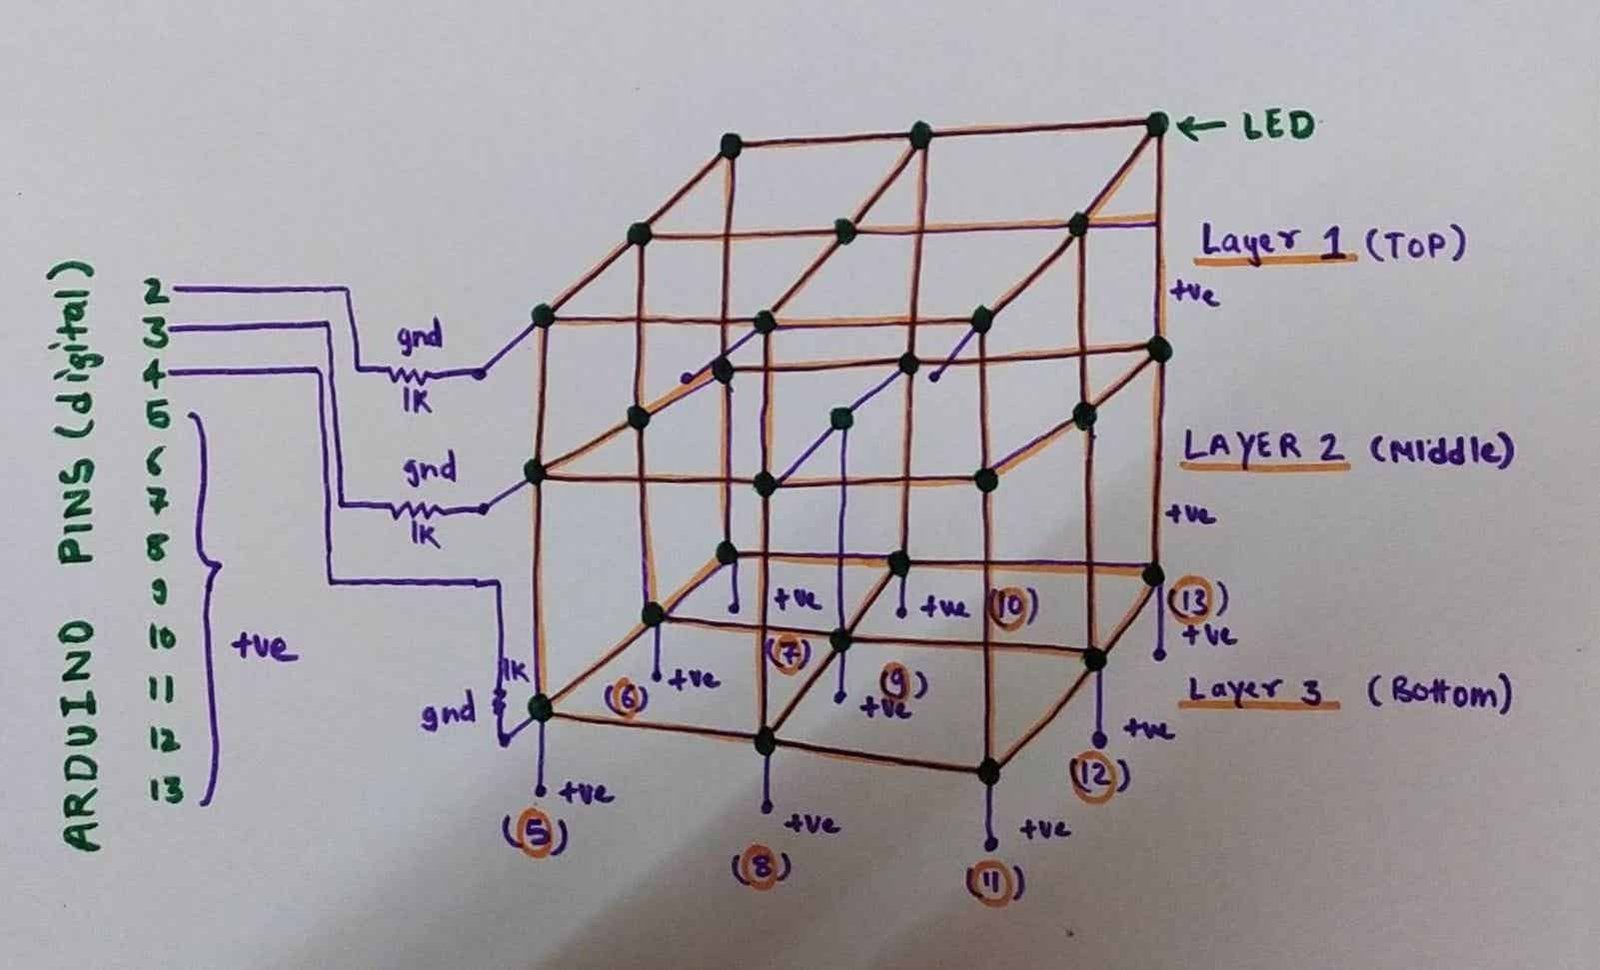 ARDUINO PINS (digital)
2
3
4
5
6
7
8
9
10
11
12
13
+ve
gnd
1K
gnd
1K
1K
gnd
← LED
Layer 1 (TOP)
+ve
LAYER 2 (Middle)
+ve
Layer 3 (Bottom)
+ve
(5)
+ve
(6)
+ve
(7)
+ve
(8)
+ve
(9)
+ve (10)
+ve
(11)
+ve
(12)
(13)
+ve